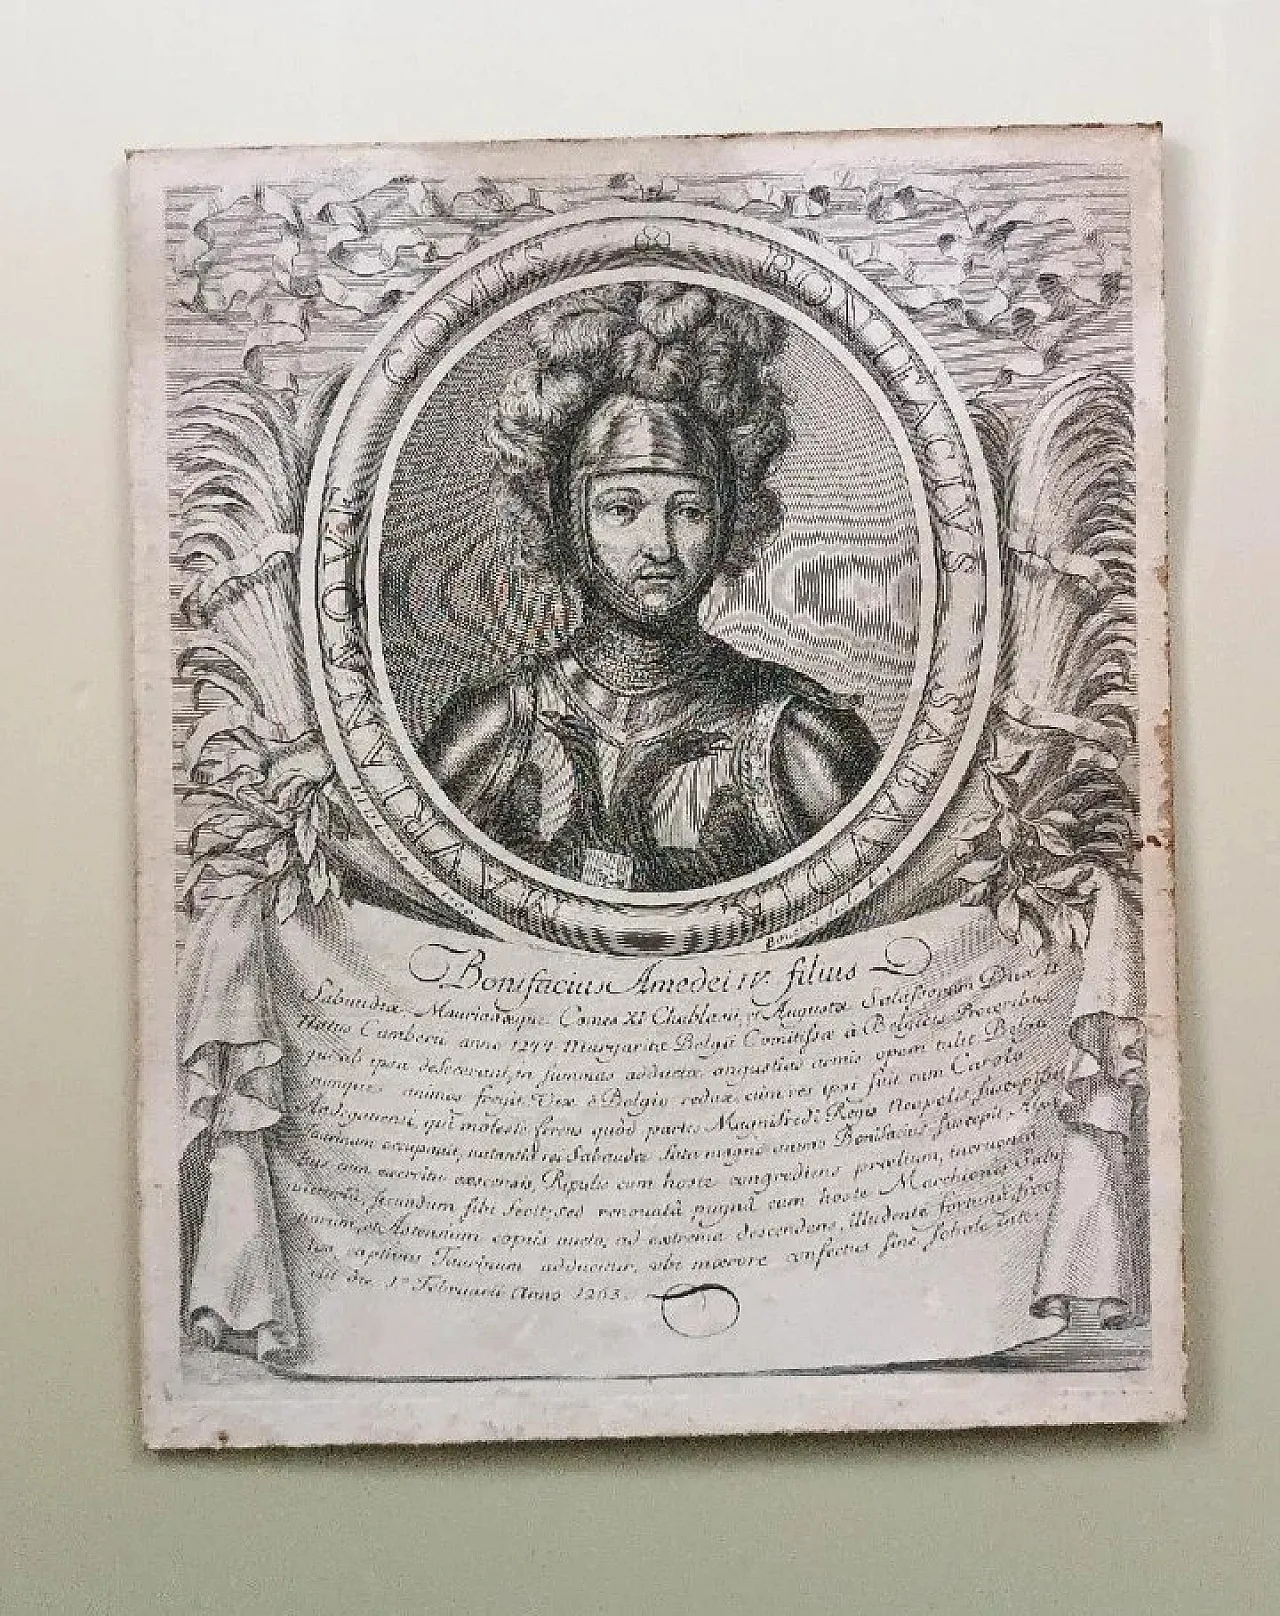 BONIFACIVS SABAVDIÆ MAVRIANÆ QVE COMES
Bonifacius Amedei IV. filius
Sabaudiæ Maurianæque Comes XI Chablasii, et Augustæ Salassorum Dux II
Natus Camberii anno 1244. Margaritæ Belgii Comitissæ à Belgicis Proceribus
quæ ab ipsa desciverant, in summas adductæ angustias armis opem tulit Belga
rumque animos fregit. Vix è Belgio redux, cùm res ipsi fuit cum Carolo
Andegavensi, qui moleste ferens quòd partes Magnifredi Regis Neapolis suscepisset
Taurinum occupavit, nutantis rei Sabaudæ fata magno animo Bonifacius suscepit
tus cum exercitu accurrit, Ripulis cum hoste congrediens prælium, incruenta
victoriâ, secundum sibi fecit; sed renovatâ pugnâ cum hoste Marchionis
et Astensium copiis aucto, ad extrema descendens, illudente fortunâ
captivus Taurinum adducitur, ubi mœrore confectus sine sobole inte-
riit die 1ª Februarii Anno 1263.